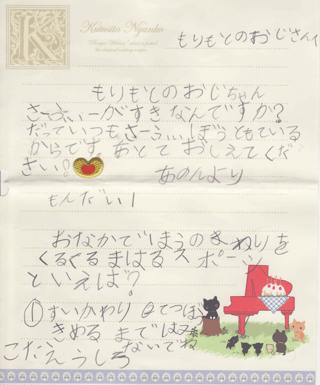 K
Kutusita Nyanko
もりもとのおじさんへ
もりもとのおじちゃん
さーふぃーがすきなんですか?
だっていつもさーふぃぼっともている
からです。あとで おしえてくだ
さい。
あのんより
もんだい1
おなかでぼうのきねりを
くるくるまはるスポーツ
といえば?
①すいかわり ②てつぼ
きめるまでは
ないでね
こたえ うしろ